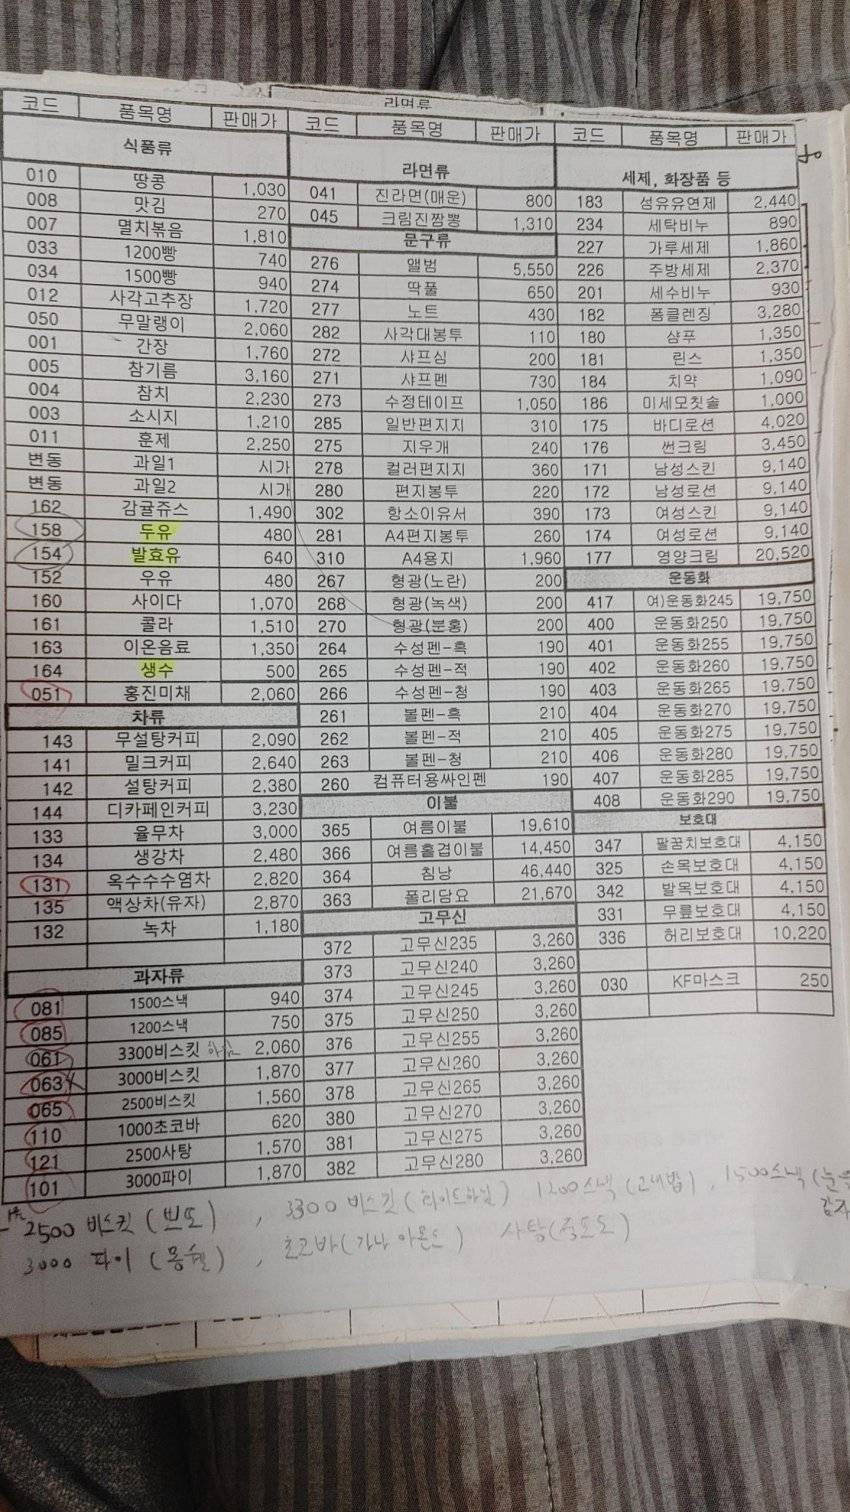 라면류
코드 품목명 판매가
식품류
010 땅콩 1,030
008 맛김 270
007 멸치볶음 1,810
033 1200빵 740
034 1500빵 940
012 사각고추장 1,720
050 무말랭이 2,060
001 간장 1,760
005 참기름 3,160
004 참치 2,230
003 소시지 1,210
011 훈제 2,250
변동 과일1 시가
변동 과일2 시가
162 감귤쥬스 1,490
158 두유 480
154 발효유 640
152 우유 480
160 사이다 1,070
161 콜라 1,510
163 이온음료 1,350
164 생수 500
051 홍진미채 2,060
차류
143 무설탕커피 2,090
141 밀크커피 2,640
142 설탕커피 2,380
144 디카페인커피 3,230
133 율무차 3,000
134 생강차 2,480
131 옥수수수염차 2,820
135 액상차(유자) 2,870
132 녹차 1,180
과자류
081 1500스낵 940
085 1200스낵 750
061 3300비스킷 2,060
063 3000비스킷 1,870
065 2500비스킷 1,560
110 1000초코바 620
121 2500사탕 1,570
101 3000파이 1,870
코드 품목명 판매가
라면류
041 진라면(매운) 800
045 크림진짬뽕 1,310
문구류
276 앨범 5,550
274 딱풀 650
277 노트 430
282 사각대봉투 110
272 샤프심 200
271 샤프펜 730
273 수정테이프 1,050
285 일반편지지 310
275 지우개 240
278 컬러편지지 360
280 편지봉투 220
302 항소이유서 390
281 A4편지봉투 260
310 A4용지 1,960
267 형광(노란) 200
268 형광(녹색) 200
270 형광(분홍) 200
264 수성펜-흑 190
265 수성펜-적 190
266 수성펜-청 190
261 볼펜-흑 210
262 볼펜-적 210
263 볼펜-청 210
260 컴퓨터용싸인펜 190
이불
365 여름이불 19,610
366 여름홑겹이불 14,450
364 침낭 46,440
363 폴리담요 21,670
고무신
372 고무신235 3,260
373 고무신240 3,260
374 고무신245 3,260
375 고무신250 3,260
376 고무신255 3,260
377 고무신260 3,260
378 고무신265 3,260
380 고무신270 3,260
381 고무신275 3,260
382 고무신280 3,260
코드 품목명 판매가
세제, 화장품 등
183 섬유유연제 2,440
234 세탁비누 890
227 가루세제 1,860
226 주방세제 2,370
201 세수비누 930
182 폼클렌징 3,280
180 샴푸 1,350
181 린스 1,350
184 치약 1,090
186 미세모칫솔 1,000
175 바디로션 4,020
176 썬크림 3,450
171 남성스킨 9,140
172 남성로션 9,140
173 여성스킨 9,140
174 여성로션 9,140
177 영양크림 20,520
운동화
417 여)운동화245 19,750
400 운동화250 19,750
401 운동화255 19,750
402 운동화260 19,750
403 운동화265 19,750
404 운동화270 19,750
405 운동화275 19,750
406 운동화280 19,750
407 운동화285 19,750
408 운동화290 19,750
보호대
347 팔꿈치보호대 4,150
325 손목보호대 4,150
342 발목보호대 4,150
331 무릎보호대 4,150
336 허리보호대 10,220
030 KF마스크 250
2500 비스킷 (빈또) , 3300 비스킷 (화이트하임) 1200스낵 (고래밥) , 1500스낵 (눈을
감자
3000 파이 (몽쉘) , 초코바 (가나 아몬드) 사탕 (폭도도)